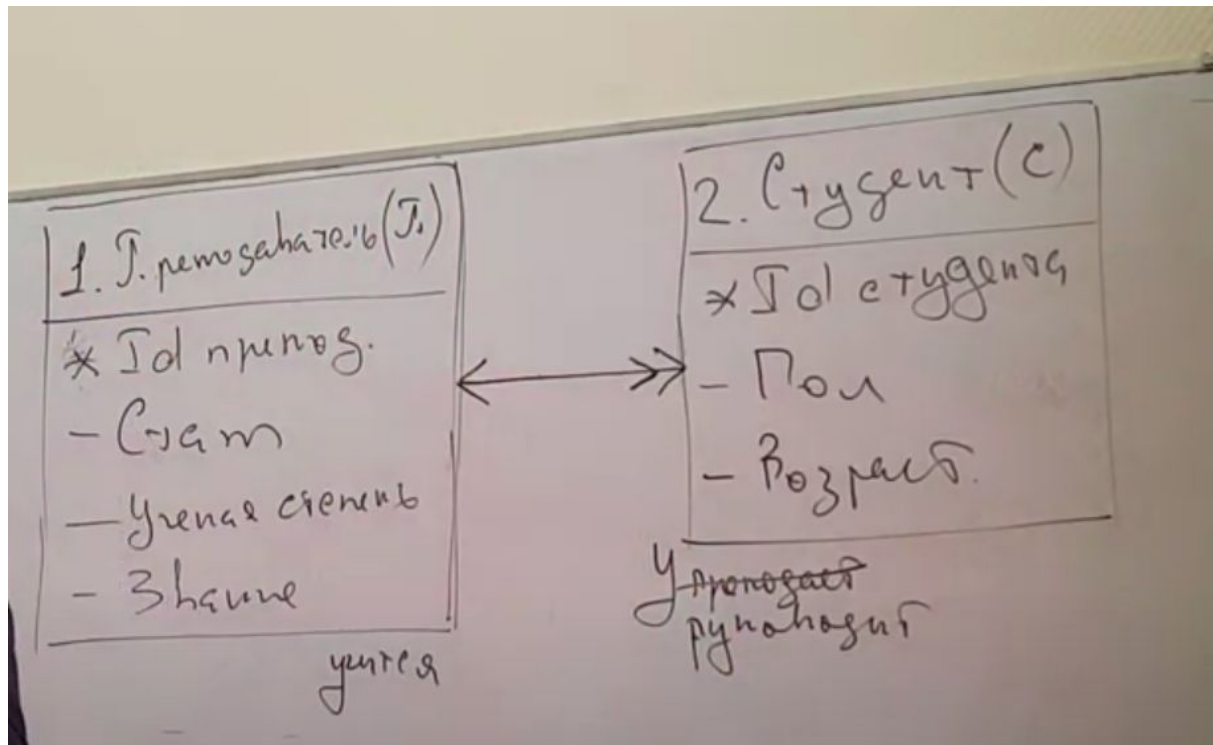 1. Преподаватель (П)
* Id препод.
- Стаж
- Ученая степень
- Звание
учится
2. Студент (С)
* Id студента
- Пол
- Возраст.
У преподает
руководит